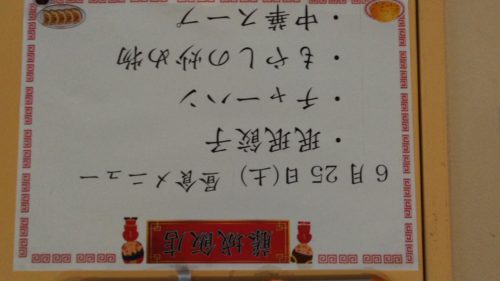 藤城飯店
6月25日(土) 昼食メニュー
・珉珉餃子
・チャーハン
・もやしの炒め物
・中華スープ